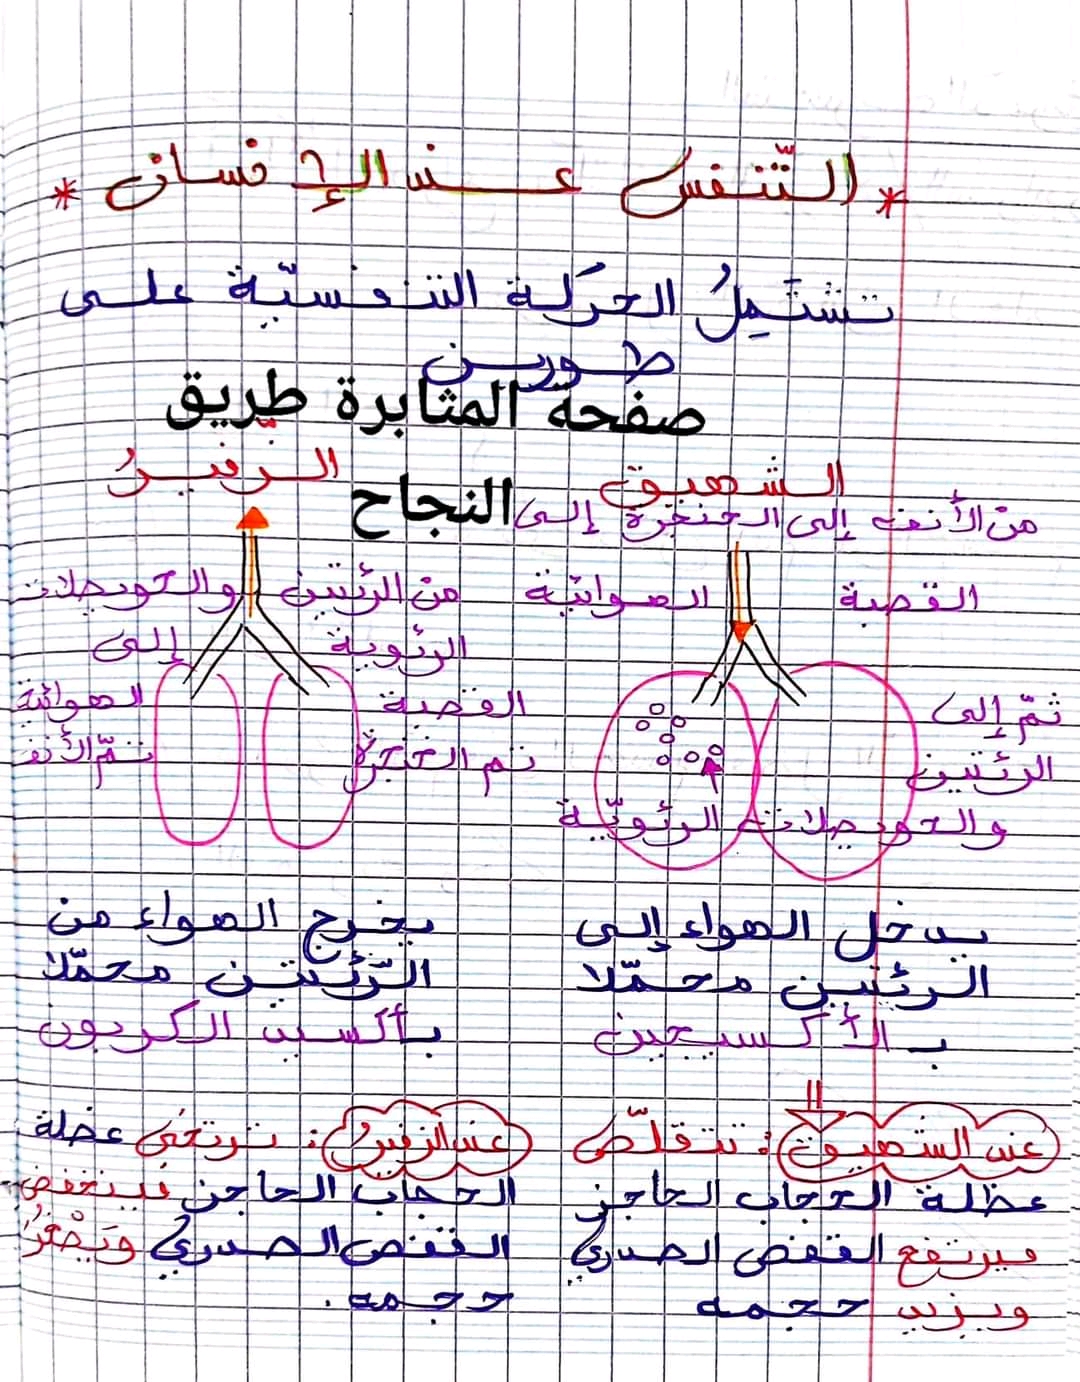 * التّنفس عند الإنسان *
تشتَمِلُ الحرَكة التنفسيّة على
طورين
صفحة المثابرة طريق
النجاح
الشهيق
من الأنف إلى الحنجرة إلى
القصبة الهوائية
ثمّ إلى
الرئتين
والحويصلات الرئويّة
يدخل الهواء إلى
الرئتين محمّلا
بالأكسيجين
عند الشهيق: تتقلّص
عظلة الحجاب الحاجز
فيرتفع القفص الصدري
ويزيد حجمه
الزّفيرُ
من الرئتين والحويصلات
الرئوية إلى
القصبة الهوائية
ثم الحنجرة ثمّ الأنف
يخرج الهواء من
الرّئتين محمّلا
بأكسيد الكربون
عند الزفير: ترتخي عضلة
الحجاب الحاجز فينخفض
القفص الصدري ويَصْغرُ
حجمه.